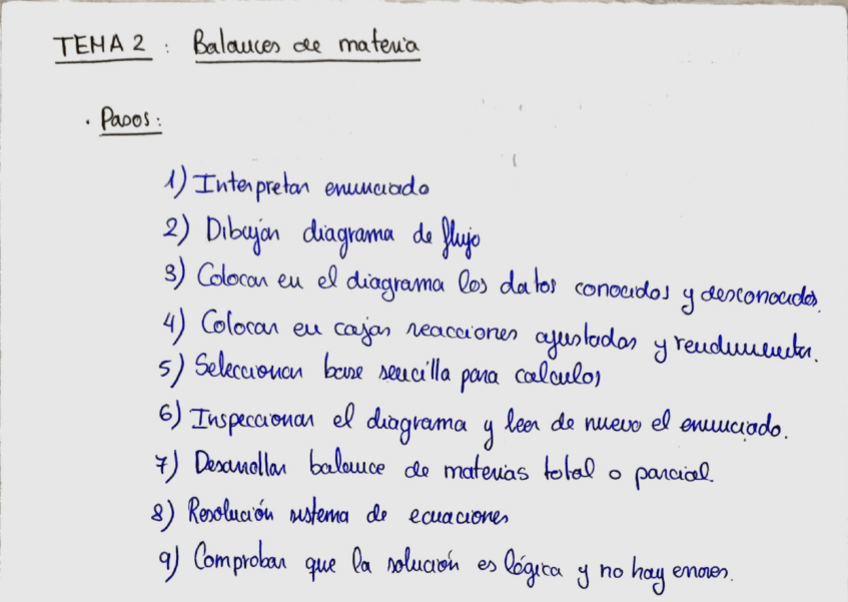 TEMA 2 : Balances de materia
· Pasos:
1) Interpretar enunciado
2) Dibujar diagrama de flujo
3) Colocar en el diagrama los datos conocidos y desconocidos.
4) Colocar en cajas reacciones ajustadas y rendimientos.
5) Seleccionar base sencilla para calculos
6) Inspeccionar el diagrama y leer de nuevo el enunciado.
7) Desarrollar balance de materias total o parcial.
8) Resolución sistema de ecuaciones
9) Comprobar que la solución es lógica y no hay errores.